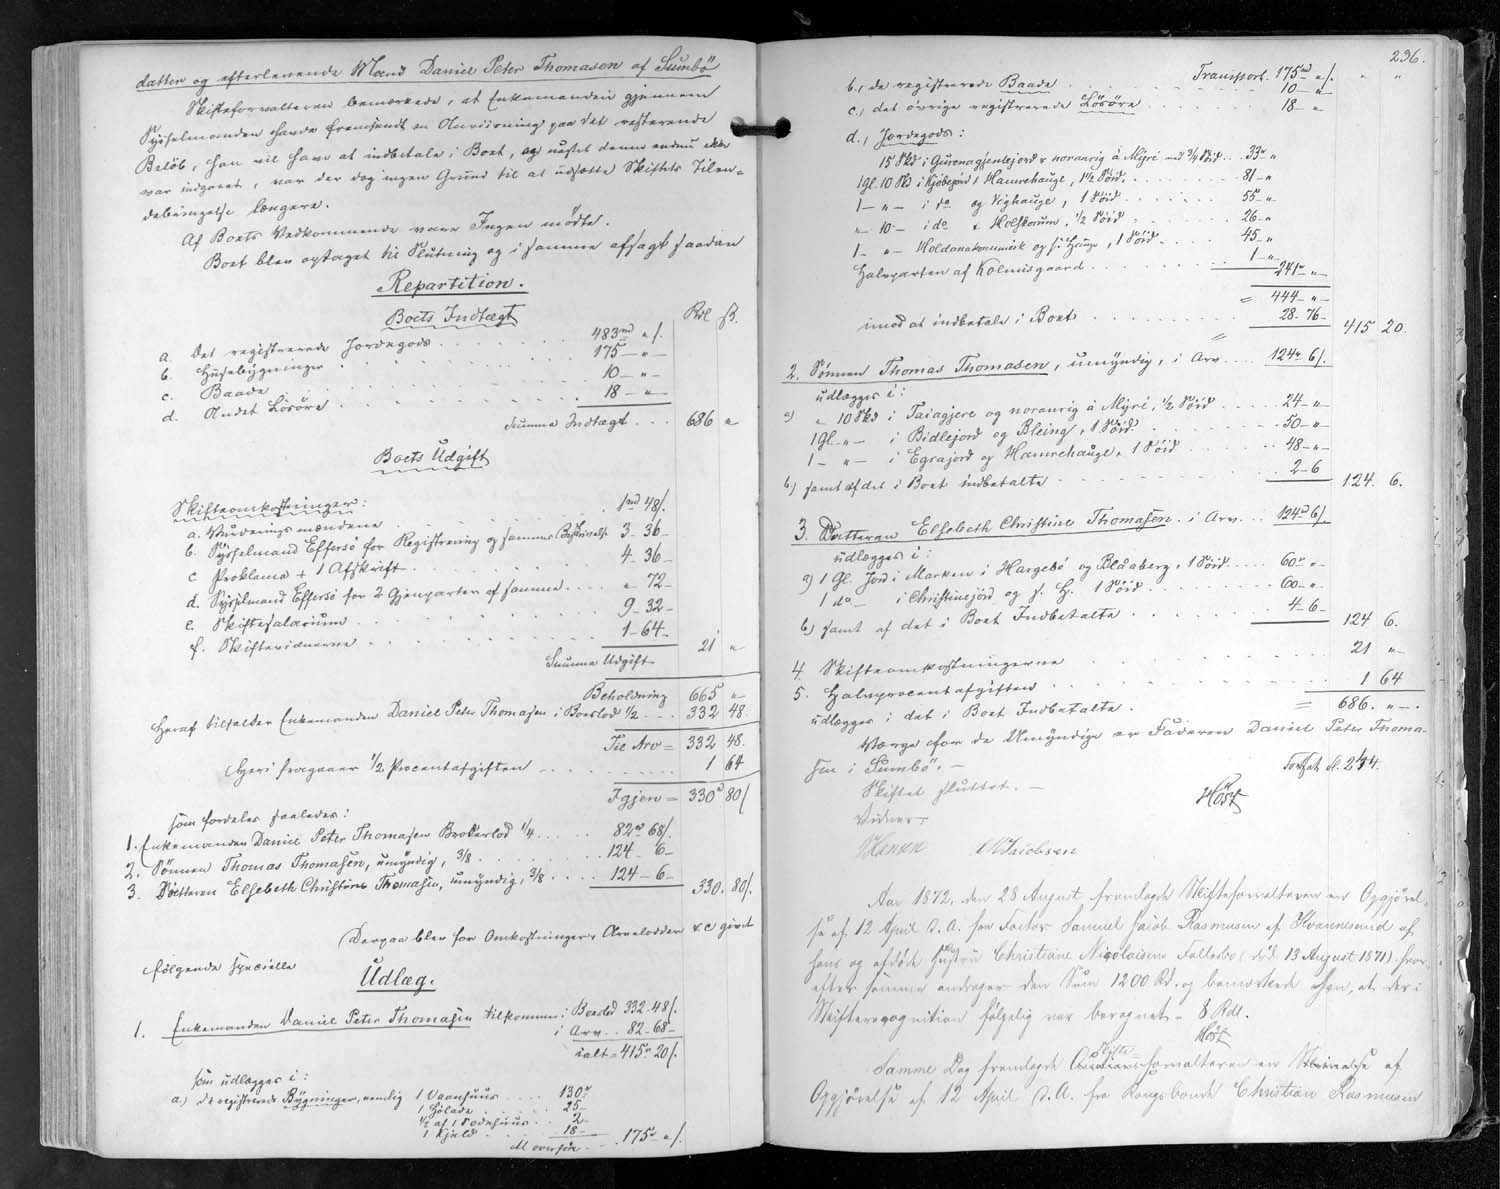 datter og efterlevende Mand Daniel Peter Thomasen af Sumbö
Skifteforvalteren bemærkede, at Enkemanden gjennem
Sysselmanden havde fremsendt en Anviisning paa det resterende
Beløb, han vil have at indbetale i Boet, og uagtet denne endnu ikke
var indgaaet, var der dog ingen Grund til at udsætte Skiftets Tilen-
debringelse længere.
Af Boets Vedkommende vare Ingen mødte.
Boet blev optaget til Slutning og i samme afsagt saadan
Repartition.
Boets Indtægt Rdl ß.
a. Det registrerede Jordegods . . . 483 rd " ß.
b. Huusebygninger . . . 175 – " –
c. Baade . . . 10 – " –
d. Andet Lösöre . . . 18 – " –
Summa Indtægt . . . 686 "
Boets Udgift
Skifteomkostninger:
a. Vurderingsmændene . . . 1 rd 48 ß.
b. Sysselmand Effersö for Registrering og sammes Beskrivelse 3 – 36 –
c Proklama + 1 Afskrift . . . 4 – 36 –
d. Sysselmand Effersö for 2 Gjenparter af samme . . . " – 72 –
e. Skiftesalarium . . . 9 – 32 –
f. Skiftevidnerne . . . 1 – 64 –
Summa Udgift 21 "
Beholdning 665 "
Heraf tilfalder Enkemanden Daniel Peter Thomasen i Boeslod 1/2 . . . 332 48.
Til Arv = 332 48.
Heri fragaaer 1/2 Procentafgiften . . . 1 64
Igjen = 330 rd 80 ß
som fordeles saaledes:
1. Enkemanden Daniel Peter Thomasen Broderlod 1/4 . . . 82 rd 68 ß.
2. Sønnen Thomas Thomasen, umyndig, 3/8 . . . 124 – 6 –
3. Datteren Elsebeth Christine Thomasen, umyndig, 3/8 . . . 124 – 6 –
330. 80 ß.
Derpaa blev for Omkostninger, Arvelodder &c givet
følgende specielle
Udlæg.
1. Enkemanden Daniel Peter Thomasen tilkommer i Boeslod 332 – 48 ß.
i Arv . . 82 – 68 –
ialt = 415 rd 20 ß.
som udlægges i:
a.) de registrerede Bygninger, nemlig 1 Vaanhuus . . . 130 rd
1 Hölade . . . 25 –
1/2 af 1 Sodnhuus . . 2 –
1 Kjeld . . . 18 –
At overføre . . . 175 rd " ß.
236.
Transport. 175 rd " ß. " "
b., de registrerede Baade . . . 10 – "
c., det övrige registrerede Lösöre . . . 18 – "
d., Jordegods:
15 Skd i Gurenagjerdejord & noranrig á Mÿri med 3/4 Söid . . 33 rd "
1 Gl. 10 Sk i Kjöbejord & Hamrehauge, 1 1/2 Söid . . . 81 – "
1 – " – i do og Vighauge, 1 Söid . . . 55 – "
" 10 – i do & Holskorum, 1/2 Söid . . . 26 – "
1 – " – og s. Hauge, 1 Söid . . . 45 – "
Halvparten af Kolmisgaard . . . 1 – " –
241 rd " –
= 444 – " –
imod at indbetale i Boet . . . 28. 76 –
= 415 20.
2. Sønnen Thomas Thomasen, umyndig, i Arv . . . 124 rd 6 ß.
udlægges i:
a) " 10 Skd i Taiagjere og noranrig á Mÿri, 1/2 Söid . . . 24 – " –
1 Gl. – " – i Bidlejord og Bleing, 1 Söid . . . 50 – " –
1 – " – i Egrajord og Hamrehauge, 1 Söid . . . 48 – " –
b) samt af det i Boet indbetalte . . . 2 – 6
124. 6.
3. Datteren Elsebeth Christine Thomasen, i Arv . . . 124 rd 6 ß.
udlægges i:
a) 1 Gl. Jord i Marken i Hargebö og Blåaberg, 1 Söid . . . 60 rd " –
1 do – i Christinejord og s. H. 1 Söid . . . 60 – " –
b) samt af det i Boet Indbetalte . . . 4 – 6 –
124 6.
4. Skifteomkostningerne . . . 21 " –
5. Halvprocentafgiften . . . 1 64
udlægges i det i Boet Indbetalte. = 686. " – .
Værge for de Umyndige er Faderen Daniel Peter Thoma-
sen i Sumbö. – Fortsat fl. 254.
Skiftet sluttet. –
Høst
Vidner.
JHansen MJacobsen
Aar 1872, den 28 August fremlagde Skifteforvalteren en Opgjørel-
se af 12 April d. A. fra Factor Samuel Jacob Rasmussen af Kvannesund af
hans og afdøde Hustru Christiane Nicolaisens Fællesbo (død 13 August 1871) hvor-
efter samme andrager den Sum 1200 Rd. og bemærkede han, at der i
Skifterecognition følgelig var beregnet – 8 Rdl.
Høst
Samme Dag fremlagde Skifteforvalteren en Skrivelse af
Opgjørelse af 12 April d. A. fra Kongsbonde Christian Rasmussen